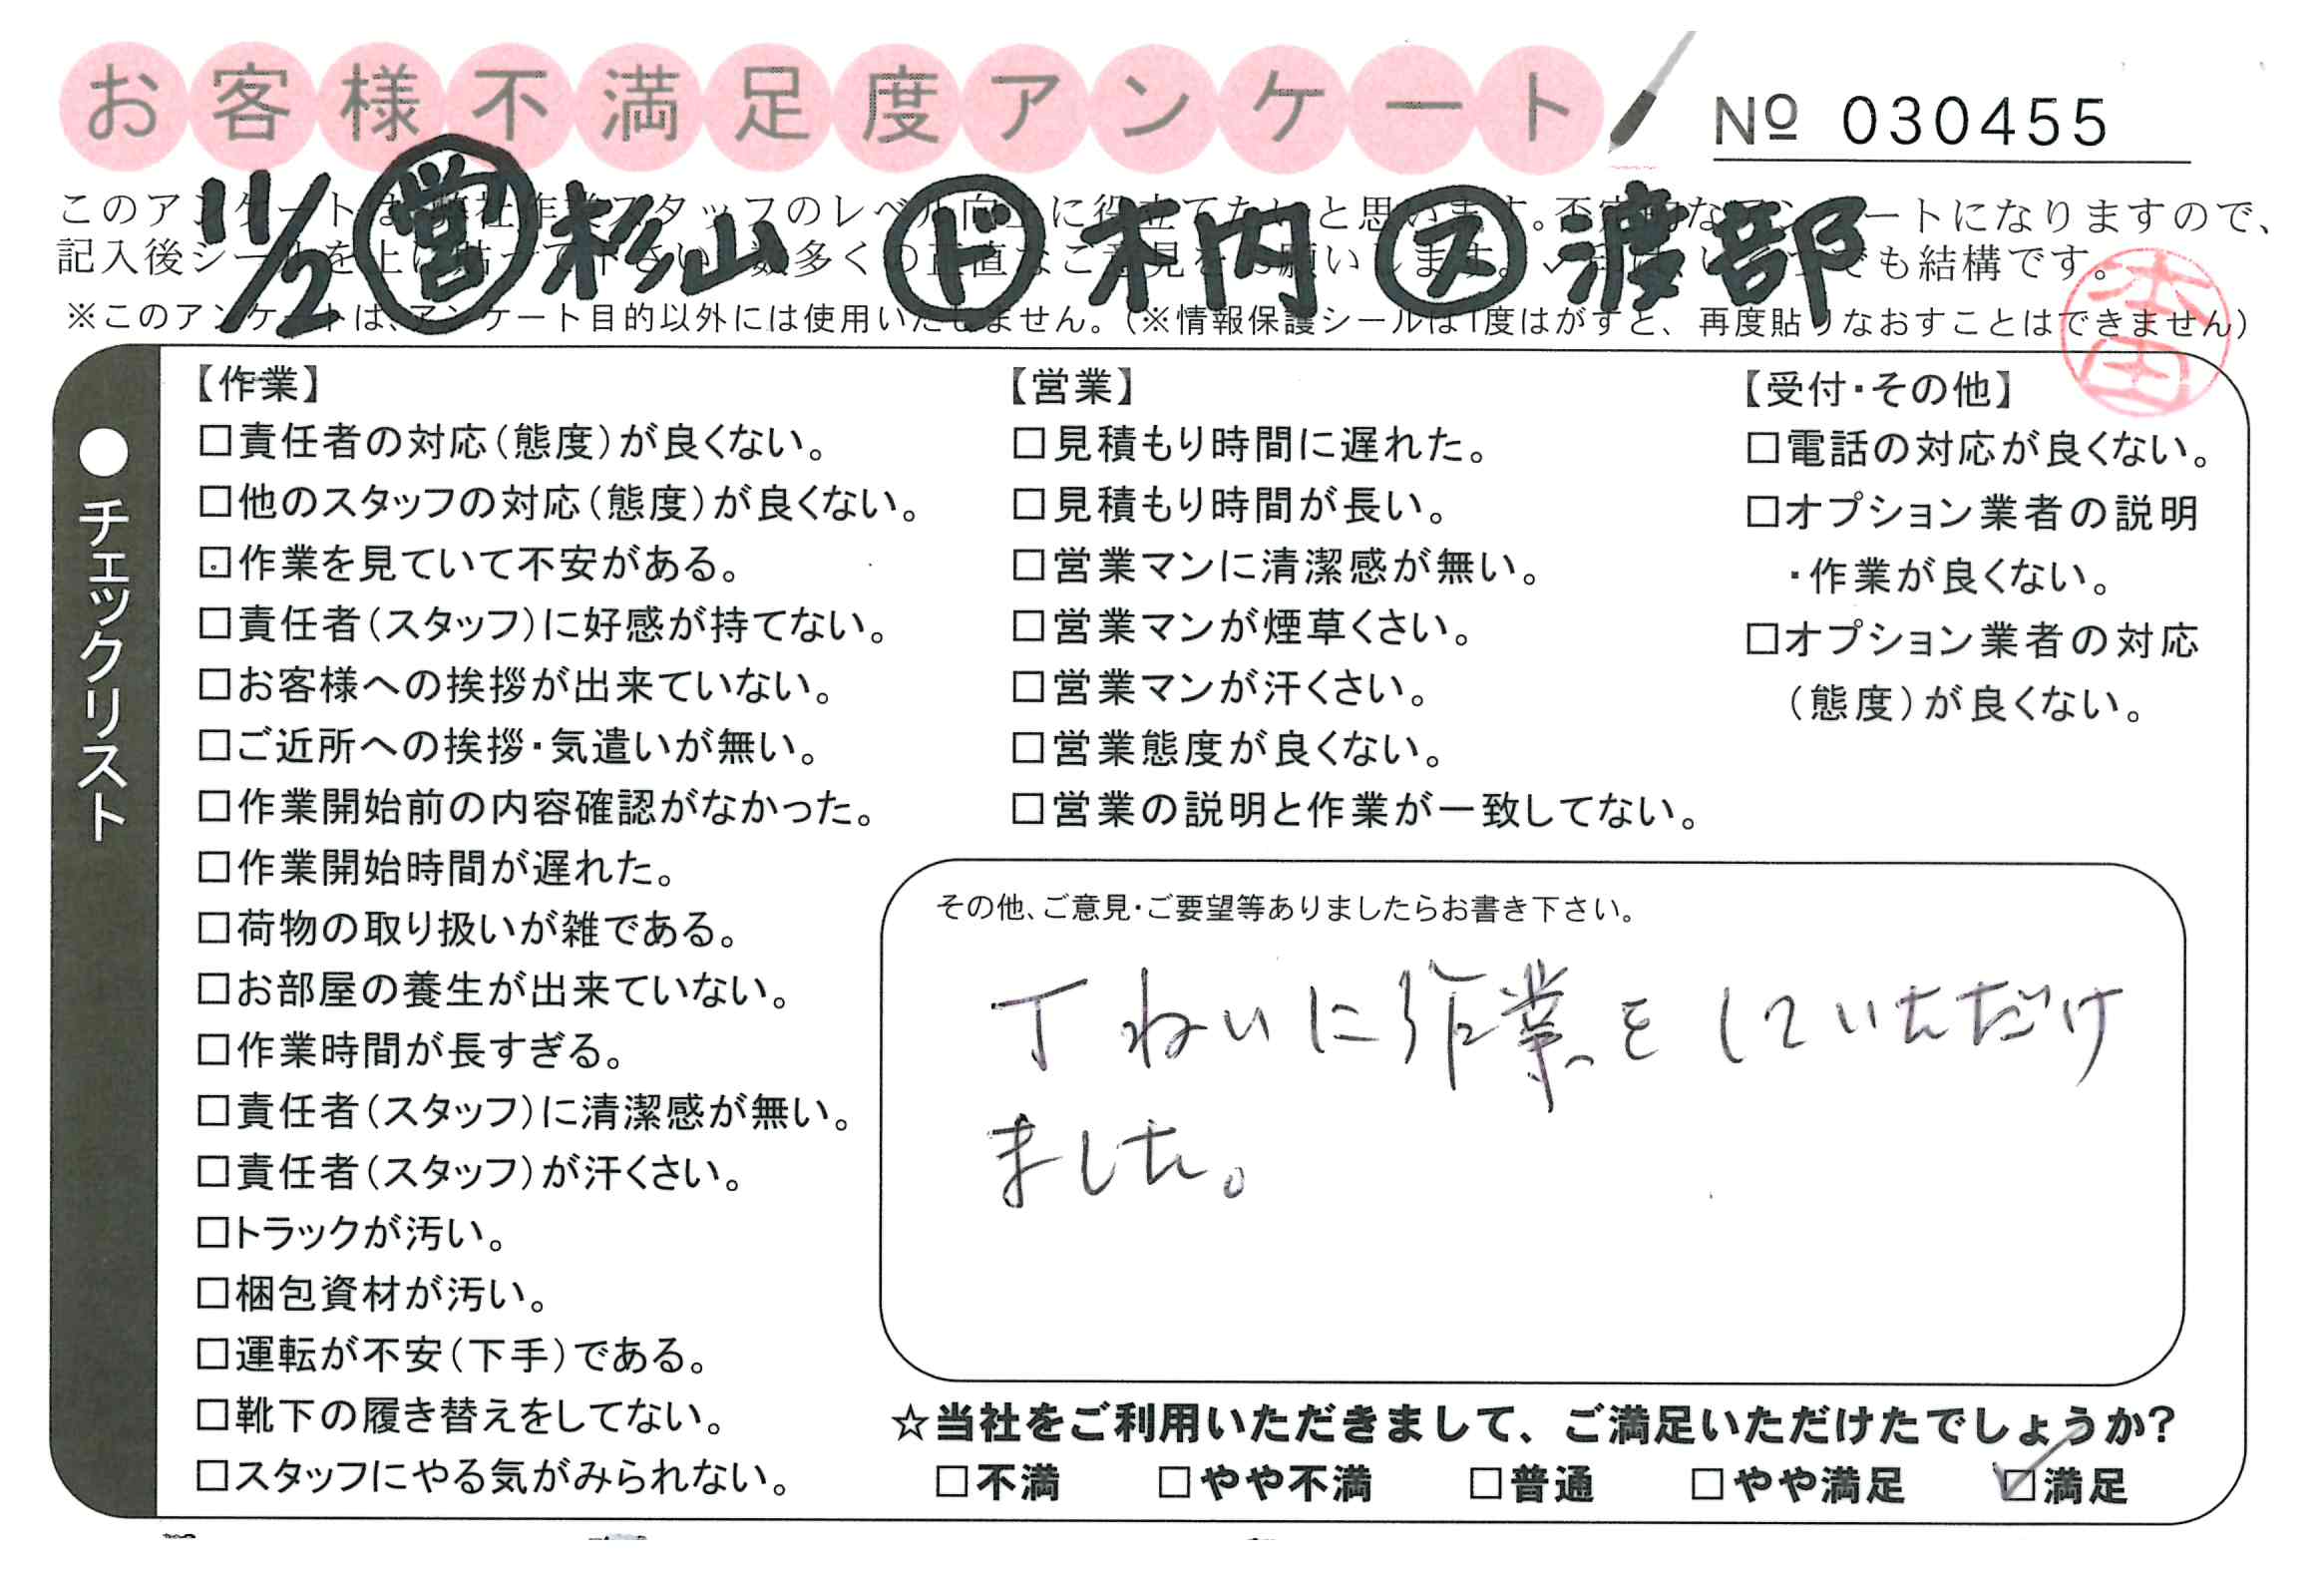 お客様不満足度アンケート
№ 030455
11/2 営 杉山 ド 木内 ス 渡部
このアンケートは、弊社作業スタッフのレベル向上に役立てたいと思います。不定期なアンケートになりますので、
記入後シールを上に貼って下さい。数多くの正直なご意見をお願いします。
でも結構です。
※このアンケートは、アンケート目的以外には使用いたしません。(※情報保護シールは1度はがすと、再度貼りなおすことはできません)
本田
●チェックリスト
【作業】
□責任者の対応(態度)が良くない。
□他のスタッフの対応(態度)が良くない。
□作業を見ていて不安がある。
□責任者(スタッフ)に好感が持てない。
□お客様への挨拶が出来ていない。
□ご近所への挨拶・気遣いが無い。
□作業開始前の内容確認がなかった。
□作業開始時間が遅れた。
□荷物の取り扱いが雑である。
□お部屋の養生が出来ていない。
□作業時間が長すぎる。
□責任者(スタッフ)に清潔感が無い。
□責任者(スタッフ)が汗くさい。
□トラックが汚い。
□梱包資材が汚い。
□運転が不安(下手)である。
□靴下の履き替えをしてない。
□スタッフにやる気がみられない。
【営業】
□見積もり時間に遅れた。
□見積もり時間が長い。
□営業マンに清潔感が無い。
□営業マンが煙草くさい。
□営業マンが汗くさい。
□営業態度が良くない。
□営業の説明と作業が一致してない。
【受付・その他】
□電話の対応が良くない。
□オプション業者の説明
・作業が良くない。
□オプション業者の対応
(態度)が良くない。
その他、ご意見・ご要望等ありましたらお書き下さい。
丁ねいに作業をしていただけ
ました。
☆当社をご利用いただきまして、ご満足いただけたでしょうか?
□不満 □やや不満 □普通 □やや満足 ☑満足